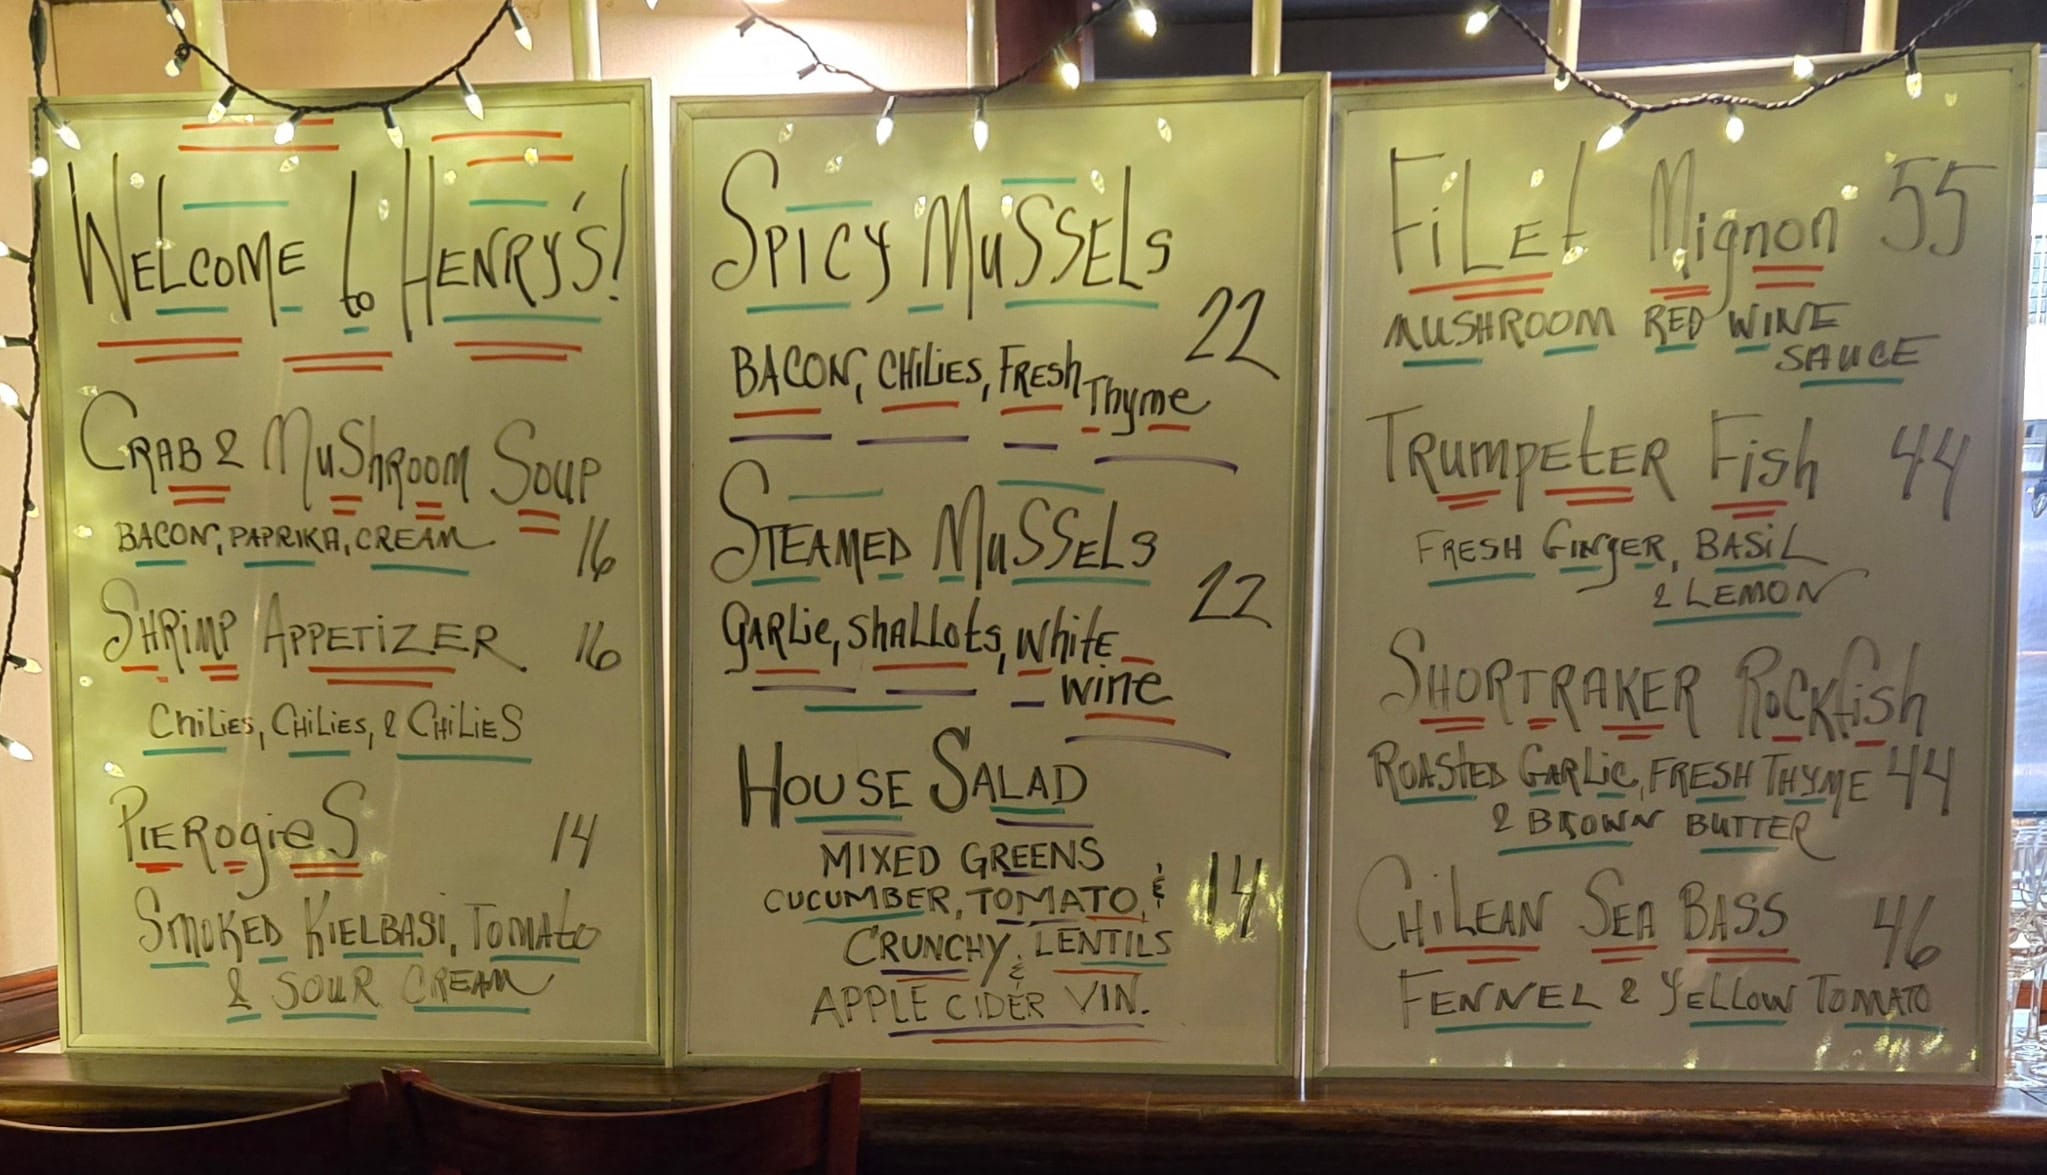 WELCOME to HENRY'S!
CRAB & MUSHROOM SOUP
BACON, PAPRIKA, CREAM 16
SHRIMP APPETIZER 16
CHILIES, CHILIES, & CHILIES
PIEROGIES 14
SMOKED KIELBASI, TOMATO
& SOUR CREAM
SPICY MUSSELS
22
BACON, CHILIES, FRESH
Thyme
STEAMED MUSSELS
22
GARLIC, SHALLOTS, WHITE
WINE
HOUSE SALAD
MIXED GREENS
CUCUMBER, TOMATO, & 14
CRUNCHY LENTILS
&
APPLE CIDER VIN.
FILET Mignon 55
MUSHROOM RED WINE
SAUCE
TRUMPETER FISH 44
FRESH GINGER, BASIL
& LEMON
SHORTRAKER ROCKFISH
ROASTED GARLIC, FRESH THYME 44
& BROWN BUTTER
CHILEAN SEA BASS 46
FENNEL & YELLOW TOMATO